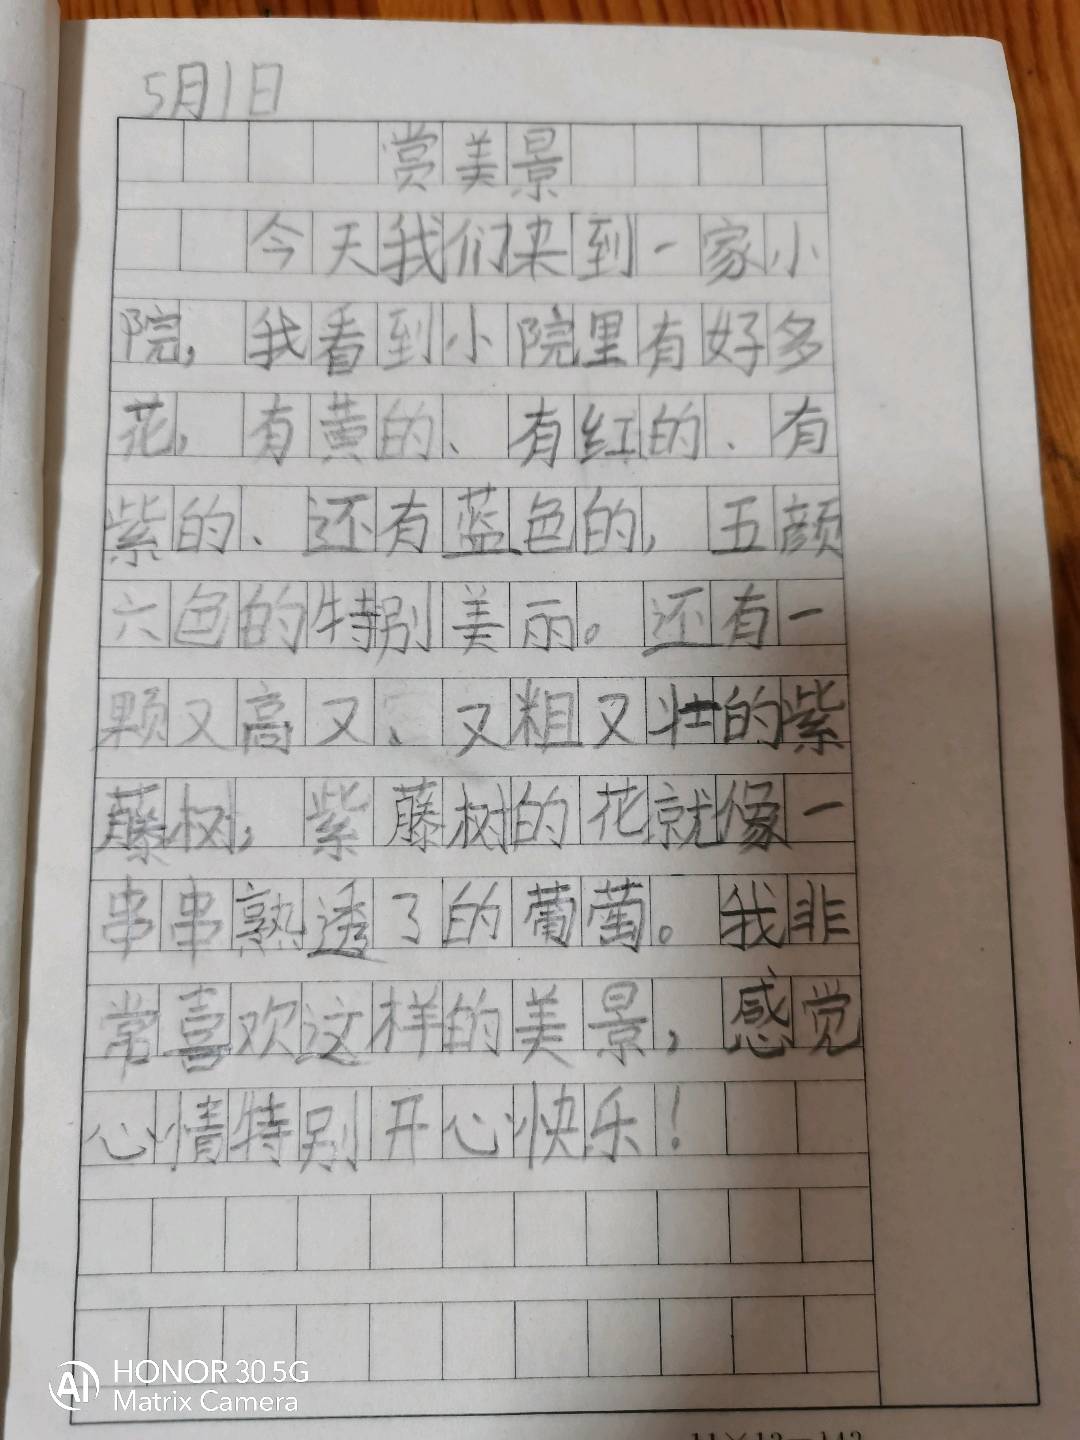 5月1日
赏美景
今天我们来到一家小
院，我看到小院里有好多
花，有黄的、有红的、有
紫的、还有蓝色的，五颜
六色的特别美丽。还有一
颗又高又、又粗又壮的紫
藤树，紫藤树的花就像一
串串熟透了的葡萄。我非
常喜欢这样的美景，感觉
心情特别开心快乐！
HONOR 30 5G
Matrix Camera